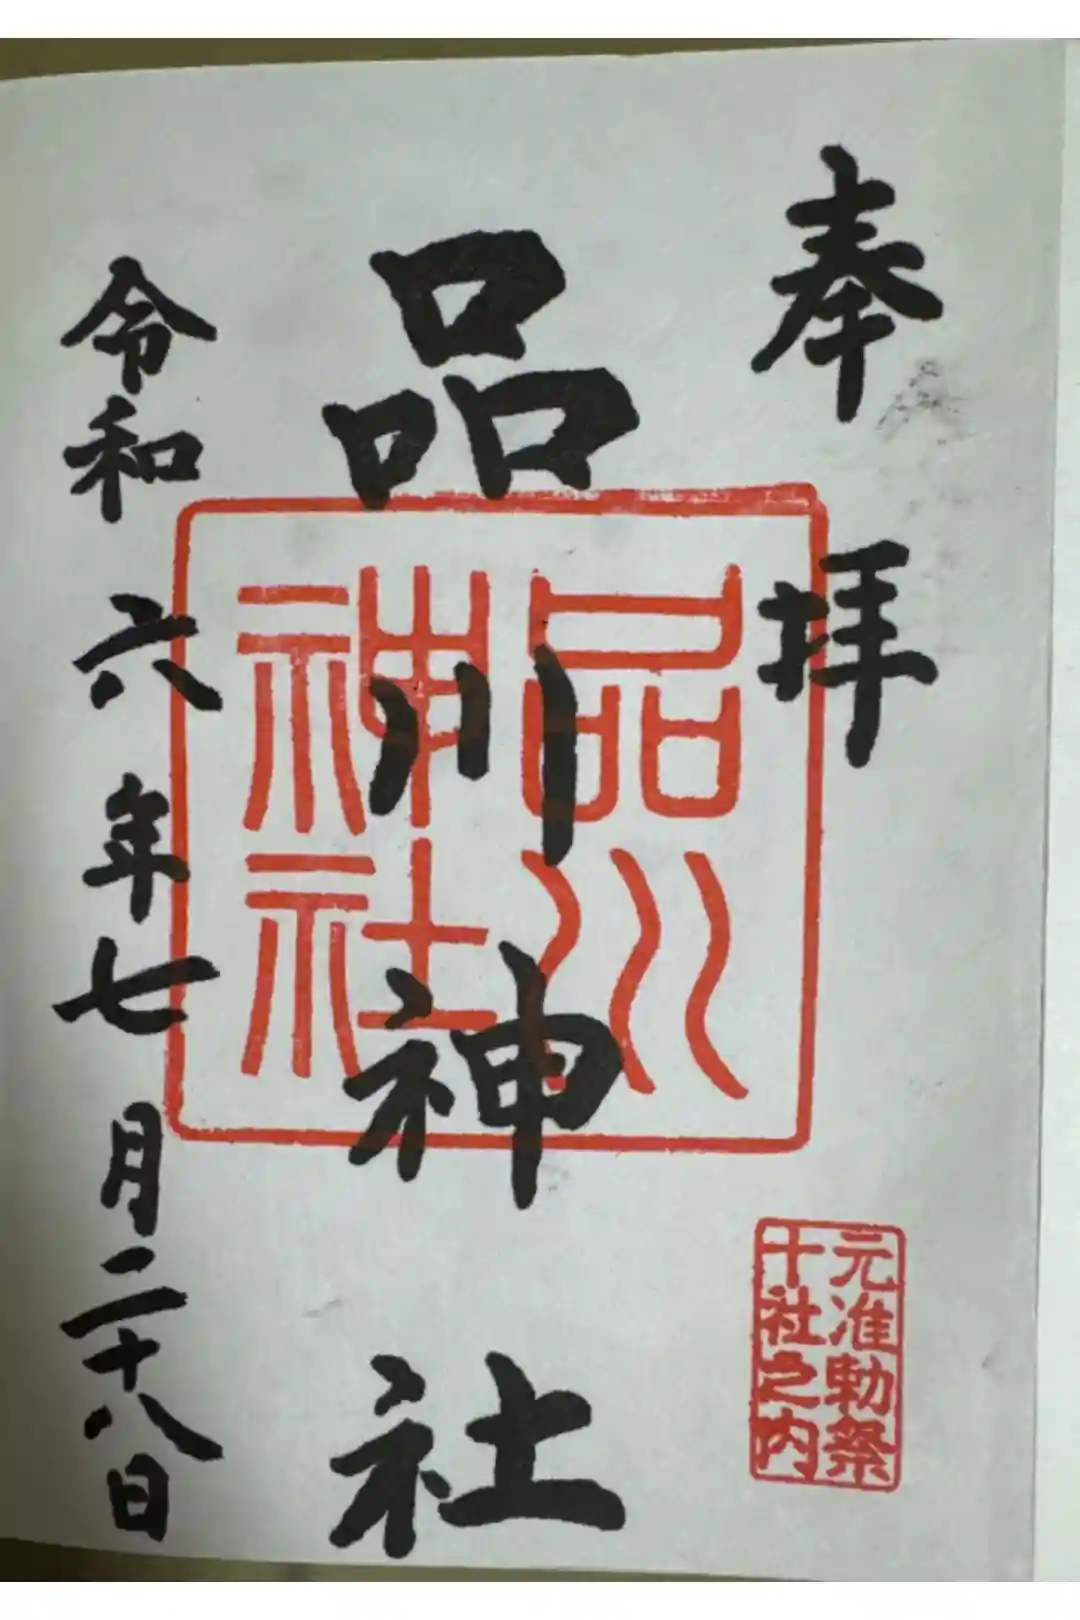 奉拝
品川神社
品川
神社
元准勅祭
十社之内
令和六年七月二十八日